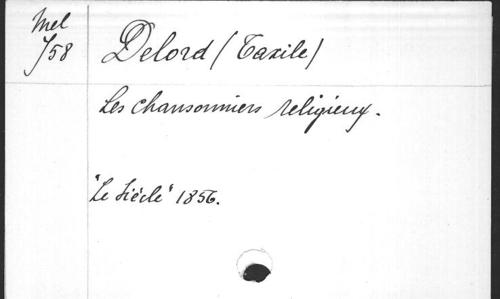 Mel
Y/58
Delord (Taxile)
Les chansonniers religieux.
"Le Siècle" 1856.